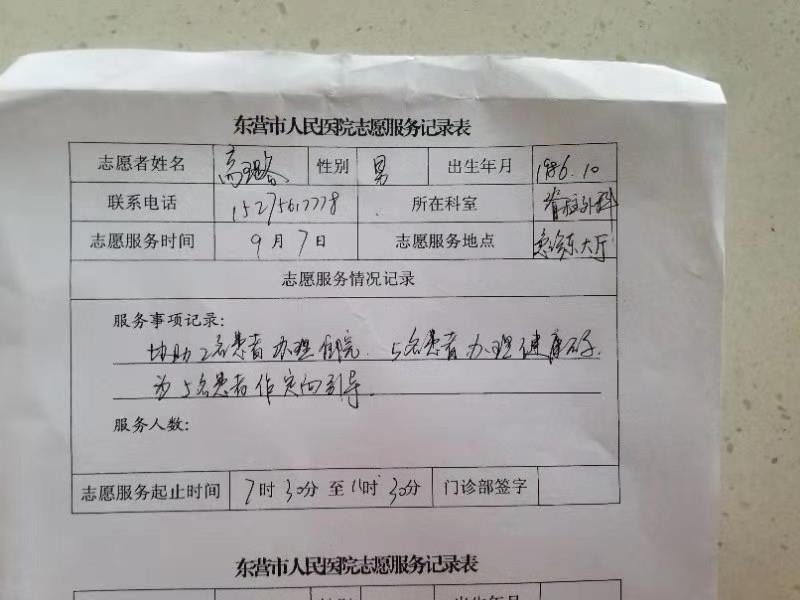 东营市人民医院志愿服务记录表
志愿者姓名 高 性别 男 出生年月 1986.10
联系电话 15275617778 所在科室 脊柱外科
志愿服务时间 9月7日 志愿服务地点 急诊东大厅
志愿服务情况记录
服务事项记录:
协助2名患者办理住院、5名患者办理健康码、
为5名患者作定向引导.
服务人数:
志愿服务起止时间 7时30分至11时30分 门诊部签字
东营市人民医院志愿服务记录表